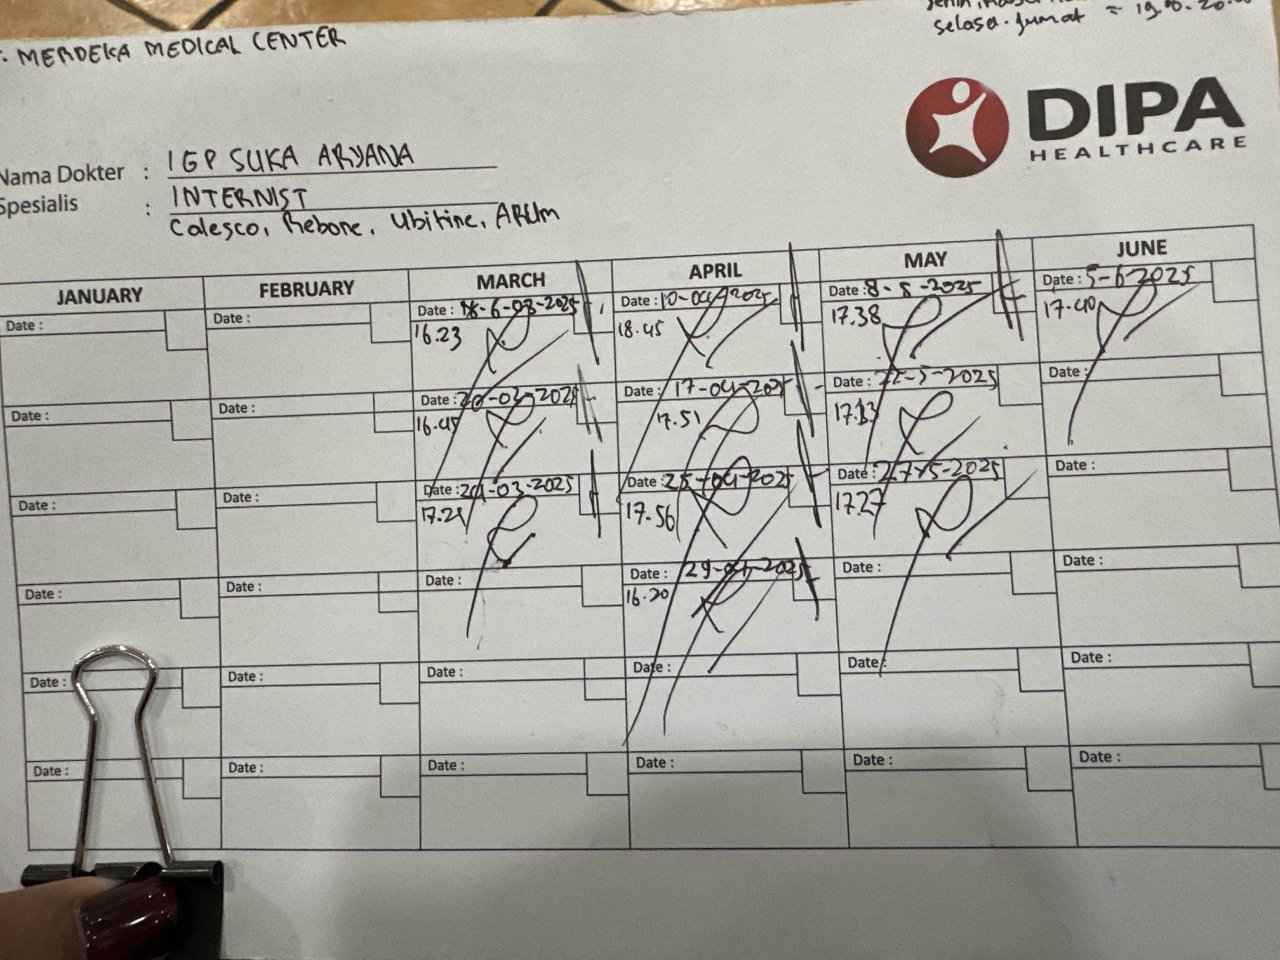 : MERDEKA MEDICAL CENTER
selasa. Jumat =
DIPA
HEALTHCARE
Nama Dokter : IGP SUKA ARYANA
Spesialis : INTERNIST
Calesco, Rebone, Ubitine,
JANUARY FEBRUARY MARCH APRIL MAY JUNE
Date : Date : Date : Date : 10-04-2025 Date : 8-5-2025 Date : 5-6-2025
16.23 18.45 17.38 17.40
Date : Date : Date : 20-03-2025 Date : 17-04-2025 Date : 22-5-2025 Date :
16.45 17.51
Date : Date : Date : -03-2025 Date : 25-04-2025 Date : 27-5-2025 Date :
17.56 17.27
Date : Date : Date : Date : 29-04-2025 Date : Date :
16.20
Date : Date : Date : Date : Date : Date :
Date : Date : Date : Date : Date : Date :